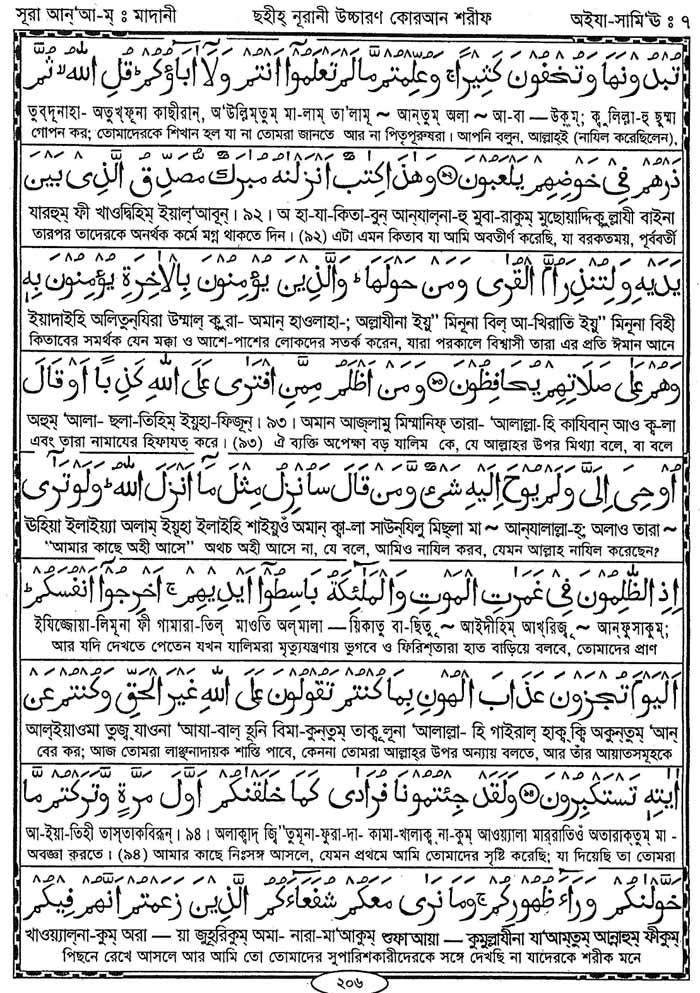 সূরা আন্'আ-ম্ : মাদানী ছহীহ্ নূরানী উচ্চারণ কোরআন শরীফ অইযা-সামি'ঊ : ৭
تُبْدُونَهَا وَتُخْفُونَ كَثِيرًا ۚ وَعُلِّمْتُمْ مَّا لَمْ تَعْلَمُوٓا أَنْتُمْ وَلَآ اٰبَآؤُكُمْ ؕ قُلِ اللّٰهُ ۙ ثُمَّ
তুব্দূনাহা- অতুখ্ফূনা কাছীরান্, অ'উল্লিম্তুম্ মা-লাম্ তা'লামূ ~ আন্তুম্ অলা ~ আ-বা — উকুম্; ক্বুলিল্লা-হু ছুম্মা
গোপন কর; তোমাদেরকে শিখান হল যা না তোমরা জানতে আর না পিতৃপুরুষরা। আপনি বলুন, আল্লাহ্ই (নাযিল করেছিলেন),
ذَرْهُمْ فِي خَوْضِهِمْ يَلْعَبُونَ ﴿٩٢﴾ وَهٰذَا كِتٰبٌ أَنْزَلْنٰهُ مُبٰرَكٌ مُّصَدِّقُ الَّذِي بَيْنَ
যারহুম্ ফী খাওদ্বিহিম্ ইয়াল্'আবূন্। ৯২। অ হা-যা-কিতা-বুন্ আন্যাল্না-হু মুবা-রাকুম্ মুছোয়াদ্দিক্বুল্লাযী বাইনা
তারপর তাদেরকে অনর্থক কর্মে মগ্ন থাকতে দিন। (৯২) এটা এমন কিতাব যা আমি অবতীর্ণ করেছি, যা বরকতময়, পূর্ববর্তী
يَدَيْهِ وَلِتُنْذِرَ أُمَّ الْقُرٰى وَمَنْ حَوْلَهَا ؕ وَالَّذِينَ يُؤْمِنُونَ بِالْاٰخِرَةِ يُؤْمِنُونَ بِهٖ
ইয়াদাইহি অলিতুন্যিরা উম্মাল্ ক্বুরা- অমান্ হাওলাহা-; অল্লাযীনা ইয়ু'' মিনূনা বিল্ আ-খিরাতি ইয়ু'' মিনূনা বিহী
কিতাবের সমর্থক যেন মক্কা ও আশে-পাশের লোকদের সতর্ক করেন, যারা পরকালে বিশ্বাসী তারা এর প্রতি ঈমান আনে
وَهُمْ عَلٰى صَلَاتِهِمْ يُحَافِظُونَ ﴿٩٣﴾ وَمَنْ أَظْلَمُ مِمَّنِ افْتَرٰى عَلَى اللّٰهِ كَذِبًا أَوْ قَالَ
অহুম্ 'আলা- ছলা-তিহিম্ ইয়ুহা-ফিজূন্। ৯৩। অমান আজ্লামু মিম্মানিফ্ তারা- 'আলাল্লা-হি কাযিবান্ আও ক্ব-লা
এবং তারা নামাযের হিফাযত্ করে। (৯৩) ঐ ব্যক্তি অপেক্ষা বড় যালিম কে, যে আল্লাহর উপর মিথ্যা বলে, বা বলে
أُوحِيَ إِلَيَّ وَلَمْ يُوحَ إِلَيْهِ شَيْءٌ وَّمَنْ قَالَ سَأُنْزِلُ مِثْلَ مَآ أَنْزَلَ اللّٰهُ ؕ وَلَوْ تَرٰٓى
ঊহিয়া ইলাইয়্যা অলাম্ ইয়ূহা ইলাইহি শাইয়ুওঁ অমান্ ক্বা-লা সাউন্যিলু মিছ্লা মা ~ আন্যালাল্লা-হ্; অলাও তারা ~
“আমার কাছে অহী আসে” অথচ অহী আসে না, যে বলে, আমিও নাযিল করব, যেমন আল্লাহ নাযিল করেছেন?
إِذِ الظّٰلِمُونَ فِي غَمَرٰتِ الْمَوْتِ وَالْمَلٰٓئِكَةُ بَاسِطُوٓا أَيْدِيهِمْ ۚ أَخْرِجُوٓا أَنْفُسَكُمْ ؕ
ইযিজ্জোয়া-লিমূনা ফী গামারা-তিল্ মাওতি অল্মালা — য়িকাতু বা-ছিতূ ~ আইদীহিম্ আখ্রিজূ ~ আন্ফুসাকুম্;
আর যদি দেখতে পেতেন যখন যালিমরা মৃত্যুযন্ত্রণায় ভুগবে ও ফিরিশ্তারা হাত বাড়িয়ে বলবে, তোমাদের প্রাণ
أَلْيَوْمَ تُجْزَوْنَ عَذَابَ الْهُونِ بِمَا كُنْتُمْ تَقُولُونَ عَلَى اللّٰهِ غَيْرَ الْحَقِّ وَكُنْتُمْ عَنْ
আল্ইয়াওমা তুজ্ যাওনা 'আযা-বাল্ হূনি বিমা-কুন্তুম্ তাকূলূনা 'আলাল্লা- হি গাইরাল্ হাক্বক্বি অকুন্তুম্ 'আন্
বের কর; আজ তোমরা লাঞ্ছনাদায়ক শাস্তি পাবে, কেননা তোমরা আল্লাহর উপর অন্যায় বলতে, আর তাঁর আয়াতসমূহকে
اٰيٰتِهٖ تَسْتَكْبِرُونَ ﴿٩٤﴾ وَلَقَدْ جِئْتُمُونَا فُرَادٰى كَمَا خَلَقْنٰكُمْ أَوَّلَ مَرَّةٍ وَّتَرَكْتُمْ مَّا
আ-ইয়া-তিহী তাস্তাকবিরূন্। ৯৪। অলাক্বাদ্ জ্বি''তুমূনা-ফুরা-দা- কামা-খালাক্ব্ না-কুম্ আওয়্যালা মার্রাতিওঁ অতারাক্তুম্ মা -
অবজ্ঞা করতে। (৯৪) আমার কাছে নিঃসঙ্গ আসলে, যেমন প্রথমে আমি তোমাদের সৃষ্টি করেছি; যা দিয়েছি তা তোমরা
خَوَّلْنٰكُمْ وَرَآءَ ظُهُورِكُمْ ۚ وَمَا نَرٰى مَعَكُمْ شُفَعَآءَكُمُ الَّذِينَ زَعَمْتُمْ أَنَّهُمْ فِيكُمْ
খাওয়্যাল্না-কুম্ অরা — য়া জুহূরিকুম্ অমা- নারা-মা'আকুম্ শুফা'আয়া — কুমুল্লাযীনা যা'আম্তুম্ আন্নাহুম্ ফীকুম্
পিছনে রেখে আসলে আর আমি তো তোমাদের সুপারিশকারীদেরকে সঙ্গে দেখছি না যাদেরকে শরীক মনে
২০৬